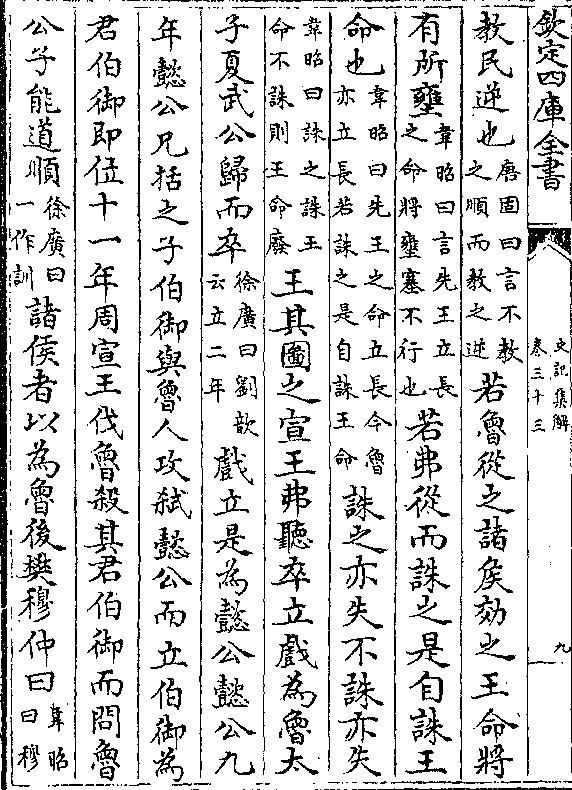 欽定四庫全書
史記集解
卷三十三
九
教民逆也唐固曰言不教之順而教之逆若魯從之諸侯効之王命將
有所壅韋昭曰言先王立長之命將壅塞不行也若弗從而誅之是自誅王
命也韋昭曰先王之命立長今魯亦立長若誅之是自誅王命誅之亦失不誅亦失
韋昭曰誅之誅王命不誅則王命廢王其圖之宣王弗聽卒立戲為魯太
子夏武公歸而卒徐廣曰劉歆云立二年戲立是為懿公懿公九
年懿公兄括之子伯御與魯人攻弑懿公而立伯御為
君伯御即位十一年周宣王伐魯殺其君伯御而問魯
公子能道順徐廣曰一作訓諸侯者以為魯後樊穆仲曰韋昭曰穆